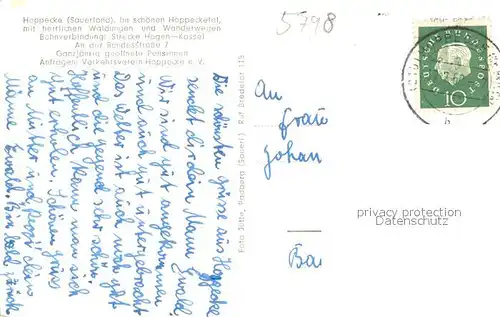 Hoppecke (Sauerland), im schönen Hoppecketal,
mit herrlichen Waldungen und Wanderwegen
Bahnverbindung: Strecke Hagen-Kassel
An der Bundesstraße 7
Ganzjährig geöffnete Pensionen
Anfragen: Verkehrsverein Hoppecke e. V.
5798
Die schönsten Grüsse aus Hoppecke
sendet dir dein Mann Ewald.
Wir sind gut angekommen
und auch gut untergebracht
Das Wetter ist auch noch gut
und die Gegend sehr schön.
Hoffentlich kann man sich
gut erholen. Schönen Gruss
an Mutter und
Ewald. Bin bald zurück.
Foto Jütte, Padberg (Sauerl.) Ruf Bredelar 115
DEUTSCHE BUNDESPOST
10
An
Frau
Johan
Ba
privacy protection
Datenschutz